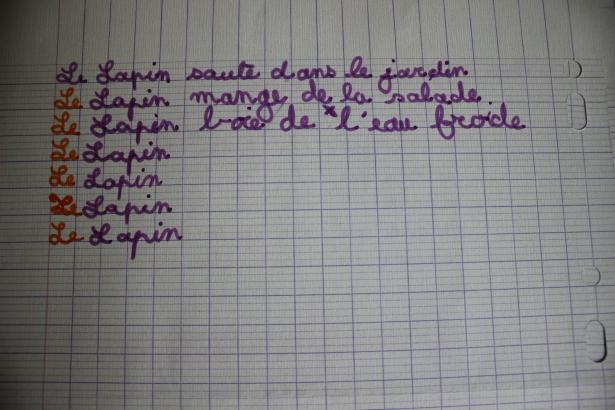 Le Lapin saute dans le jardin
Le Lapin mange de la salade.
Le Lapin boie de l'eau froide
Le Lapin
Le Lapin
Le Lapin
Le Lapin